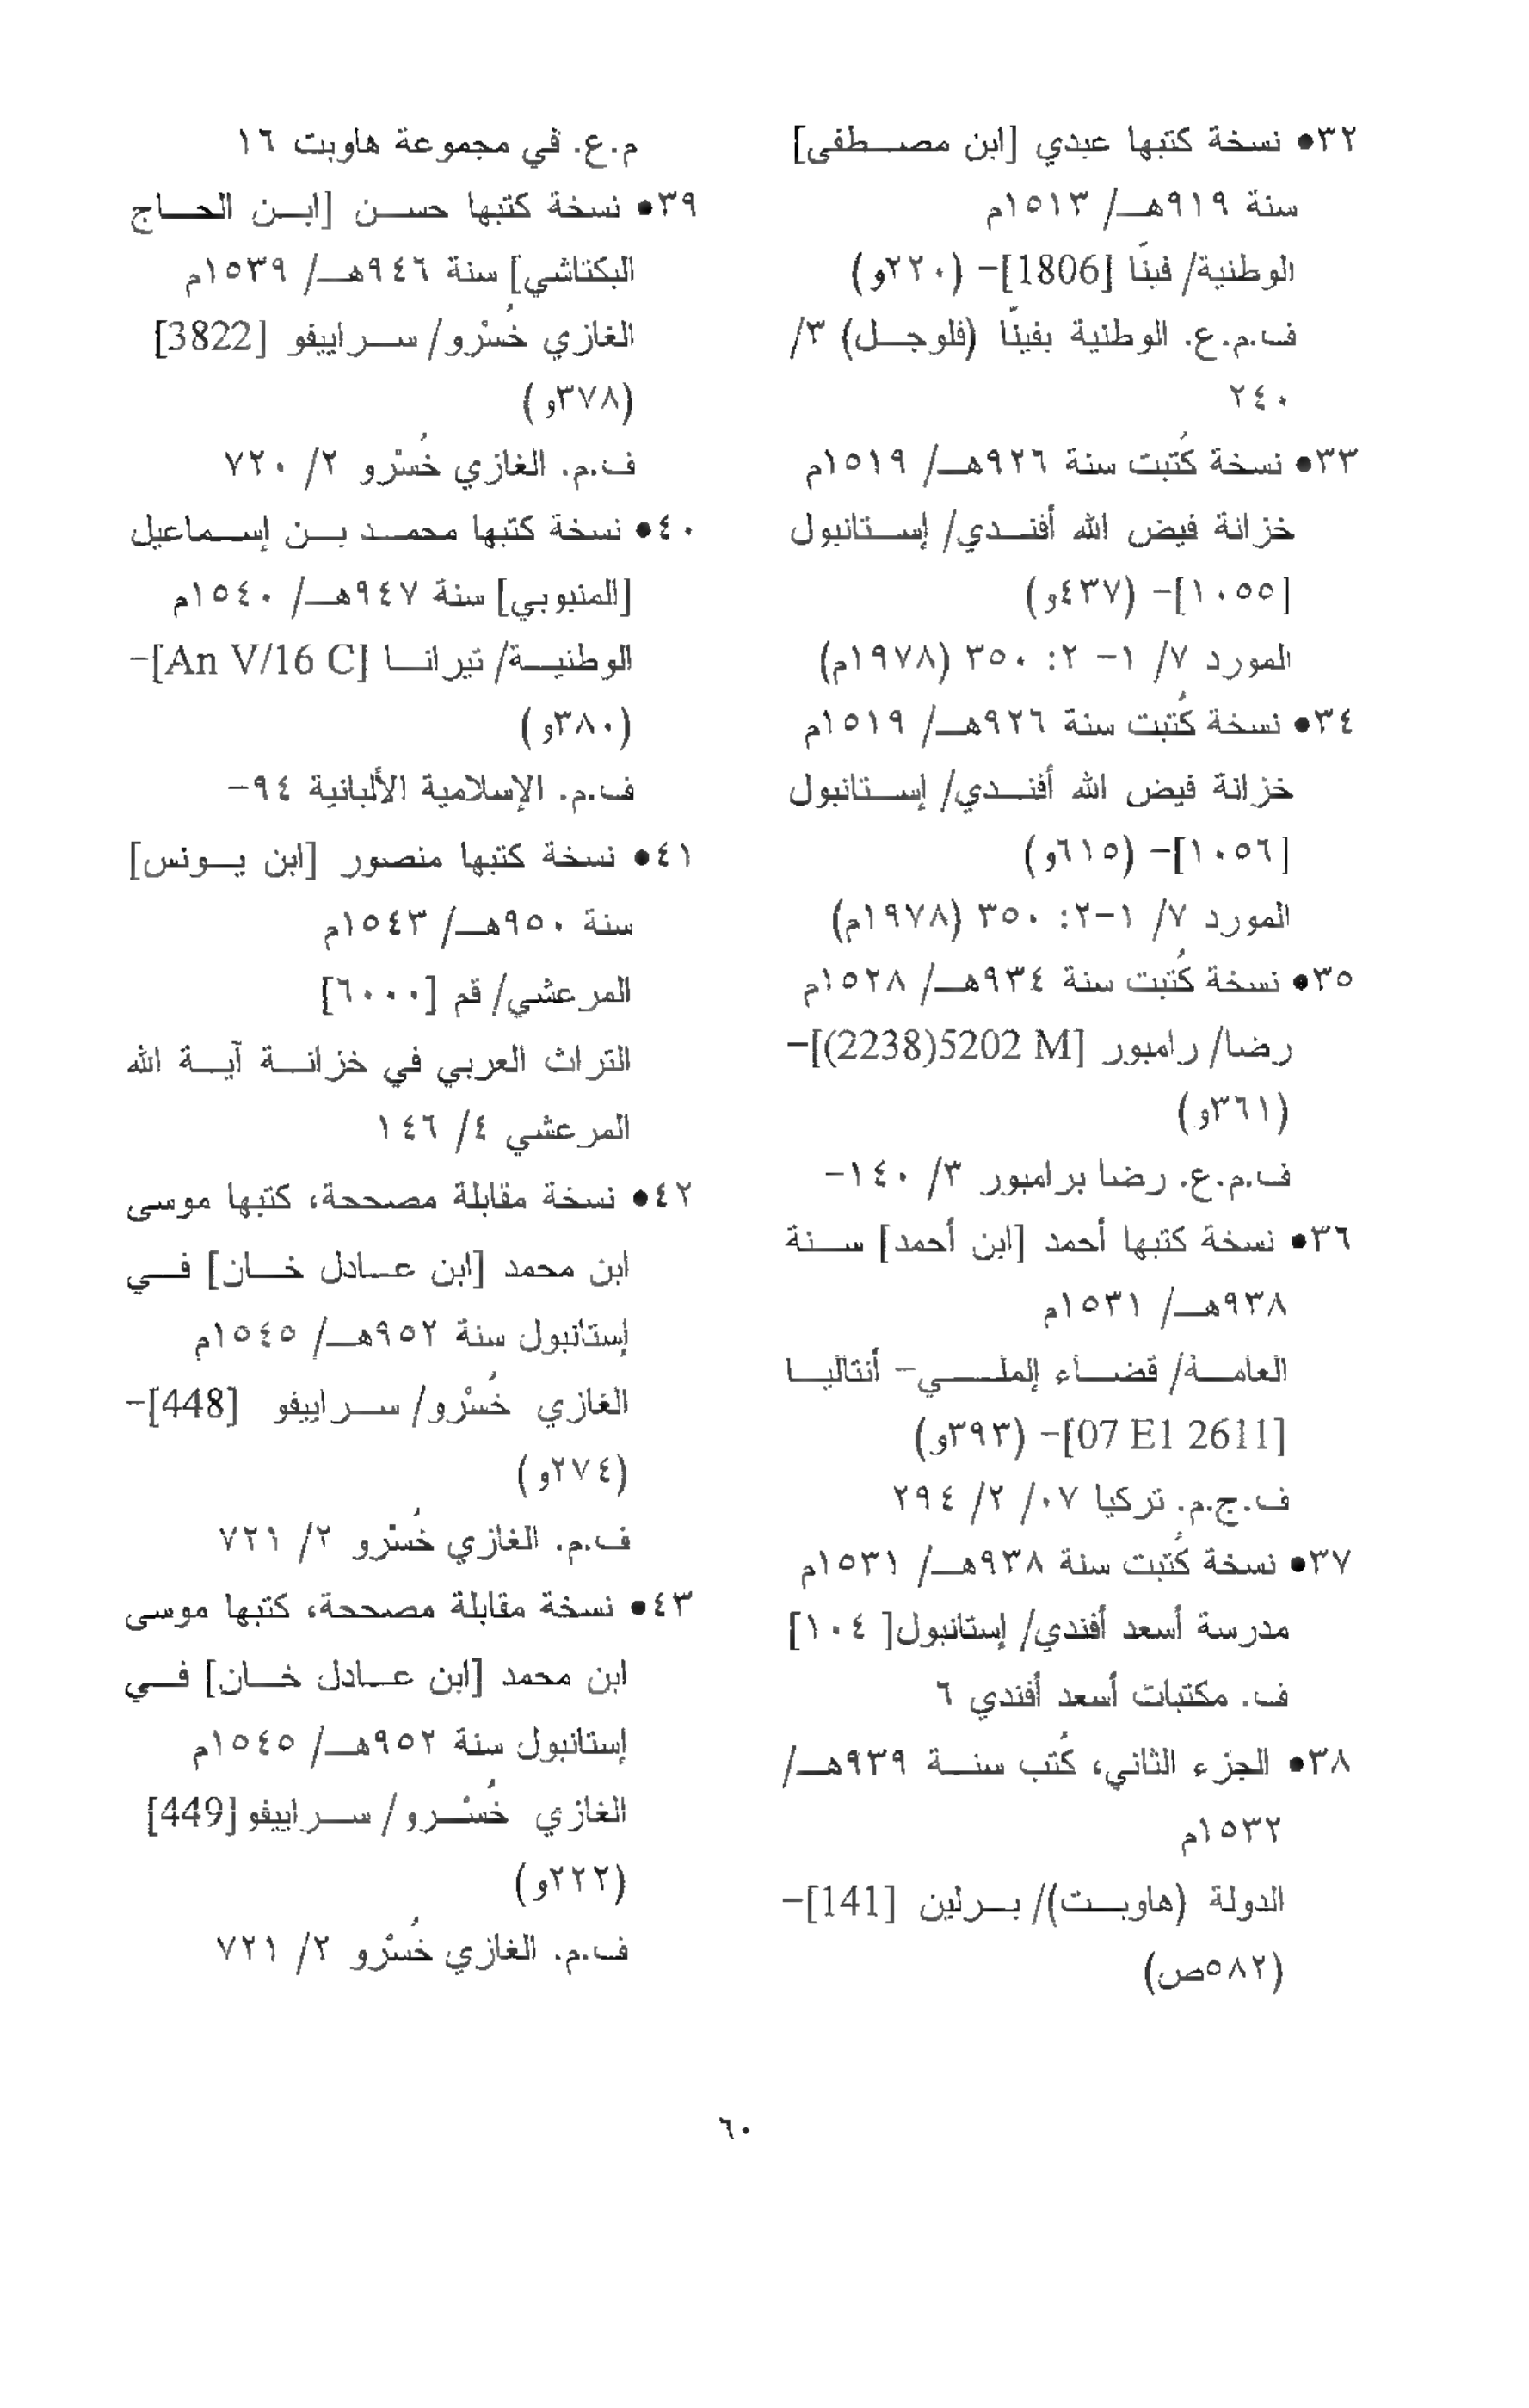 ٣٢• نسخة كتبها عبدي [ابن مصطفى]
سنة ٩١٩هـ/ ١٥١٣م
الوطنية/ فينّا [1806]- (٢٢٠و)
ف.م.ع. الوطنية بفينّا (فلوجل) ٣/
٢٤٠
٣٣• نسخة كُتبت سنة ٩٢٦هـ/ ١٥١٩م
خزانة فيض الله أفندي/ إستانبول
[١٠٥٥]- (٤٣٧و)
المورد ٧/ ١- ٢: ٣٥٠ (١٩٧٨م)
٣٤• نسخة كُتبت سنة ٩٢٦هـ/ ١٥١٩م
خزانة فيض الله أفندي/ إستانبول
[١٠٥٦]- (٦١٥و)
المورد ٧/ ١-٢: ٣٥٠ (١٩٧٨م)
٣٥• نسخة كُتبت سنة ٩٣٤هـ/ ١٥٢٨م
رضا/ رامبور [5202 M(2238)]-
(٣٦١و)
ف.م.ع. رضا برامبور ٣/ ١٤٠-
٣٦• نسخة كتبها أحمد [ابن أحمد] سنة
٩٣٨هـ/ ١٥٣١م
العامة/ قضاء إلملي- أنتاليا
[07 E1 2611]- (٣٩٣و)
ف.ج.م. تركيا ٠٧/ ٢/ ٢٩٤
٣٧• نسخة كُتبت سنة ٩٣٨هـ/ ١٥٣١م
مدرسة أسعد أفندي/ إستانبول[ ١٠٤]
ف. مكتبات أسعد أفندي ٦
٣٨• الجزء الثاني، كُتب سنة ٩٣٩هـ/
١٥٣٢م
الدولة (هاوبت)/ برلين [141]-
(٥٨٢ص)
م.ع. في مجموعة هاوبت ١٦
٣٩• نسخة كتبها حسن [ابن الحاج
البكتاشي] سنة ٩٤٦هـ/ ١٥٣٩م
الغازي خُسْرو/ سراييفو [3822]
(٣٧٨و)
ف.م. الغازي خُسْرو ٢/ ٧٢٠
٤٠• نسخة كتبها محمد بن إسماعيل
[المنبوبي] سنة ٩٤٧هـ/ ١٥٤٠م
الوطنية/ تيرانا [An V/16 C]-
(٣٨٠و)
ف.م. الإسلامية الألبانية ٩٤-
٤١• نسخة كتبها منصور [ابن يونس]
سنة ٩٥٠هـ/ ١٥٤٣م
المرعشي/ قم [٦٠٠٠]
التراث العربي في خزانة آية الله
المرعشي ٤/ ١٤٦
٤٢• نسخة مقابلة مصححة، كتبها موسى
ابن محمد [ابن عادل خان] في
إستانبول سنة ٩٥٢هـ/ ١٥٤٥م
الغازي خُسْرو/ سراييفو [448]-
(٢٧٤و)
ف.م. الغازي خُسْرو ٢/ ٧٢١
٤٣• نسخة مقابلة مصححة، كتبها موسى
ابن محمد [ابن عادل خان] في
إستانبول سنة ٩٥٢هـ/ ١٥٤٥م
الغازي خُسْرو/ سراييفو[449]
(٢٢٢و)
ف.م. الغازي خُسْرو ٢/ ٧٢١
٦٠